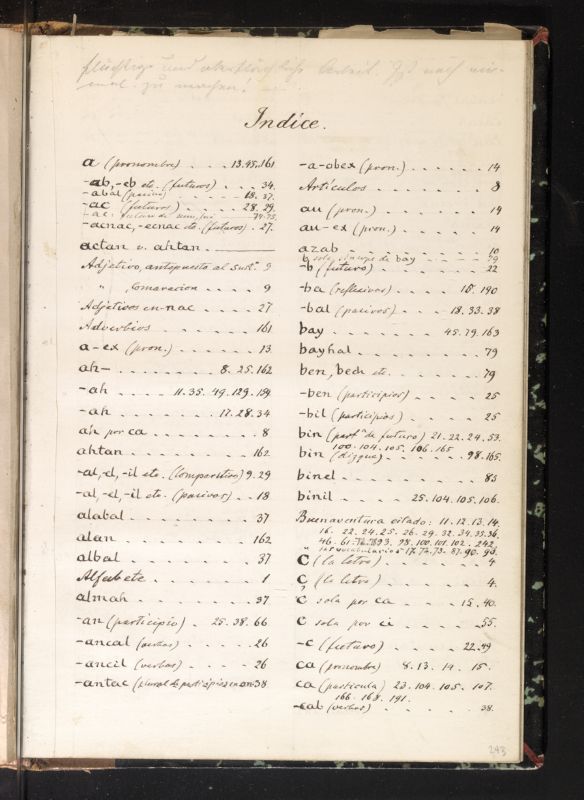 flüchtige und oberflächliche Arbeit. Ist noch ein-
mal zu machen!
Indice.
a (pronombre) . . . . 13.45.161
-ab, -eb etc. (futuros) . . . 34.
-abal (pasivo) . . . . 18. 37.
-ac (futuros) . . . . 28. 29.
-ac
-acnac, -ecnac etc. (futuros) . . 27.
actan v. ahtan .
Adjetivo, antepuesto al sust.o 9
" , comparacion . . . . 9
Adjetivos en -nac . . . . 27
Adverbios . . . . 161
a-ex (pron.) . . . . 13
ah- . . . . 8. 25. 162
-ah . . . . 11. 35. 49. 129. 154
-ah . . . . 17. 28. 34
ah por ca . . . . 8
ahtan . . . . 162
-al, -el, -il etc. (comparativo) 9. 29
-al, -el, -il etc. (pasivos) . . 18
alabal . . . . 37
alan . . . . 162
albal . . . . 37
Alfabete . . . . 1
almah . . . . 37
-an (participio) . . 25. 38. 66
-ancal (verbos) . . . . 26
-ancil (verbos) . . . . 26
-antac (plural de participios en an) 38
-a-obex (pron.) . . . . 14
Artículos . . . . 8
au (pron.) . . . . 14
au-ex (pron.) . . . . 14
azab . . . . 10
b solo, en lugar de bay . . . . 79
-b (futuro) . . . . 22
-ba (reflexivos) . . . . 18. 190
-bal (pasivos) . . . . 18. 33. 38
bay . . . . 45. 79. 163
bayhal . . . . 79
ben, bech etc. . . . . 79
-ben (participios) . . . . 25
-bil (participios) . . . . 25
bin (partª de futuro) 21. 22. 24. 53.
100. 104. 105. 106. 165
bin (dizque) . . . . 98. 165.
binel . . . . 83
binil . . . . 25. 104. 105. 106.
Buenaventura citado: 11. 12. 13. 14.
16. 22. 24. 25. 26. 29. 32. 34. 35. 36.
46. 61. 93. 98. 100. 101. 102. 242.
" vocabularios 17. 72. 73. 87. 90. 93.
C (la letra) . . . . 4
Ç (la letra) . . . . 4.
C sola por ca . . . . 15. 40.
C sola por ci . . . . 55.
-c (futuro) . . . . 22. 49
ca (pronombre) 8. 13. 14. 15.
ca (particula) 23. 104. 105. 107.
166. 168. 191.
-cab (verbos) . . . . 38.
243